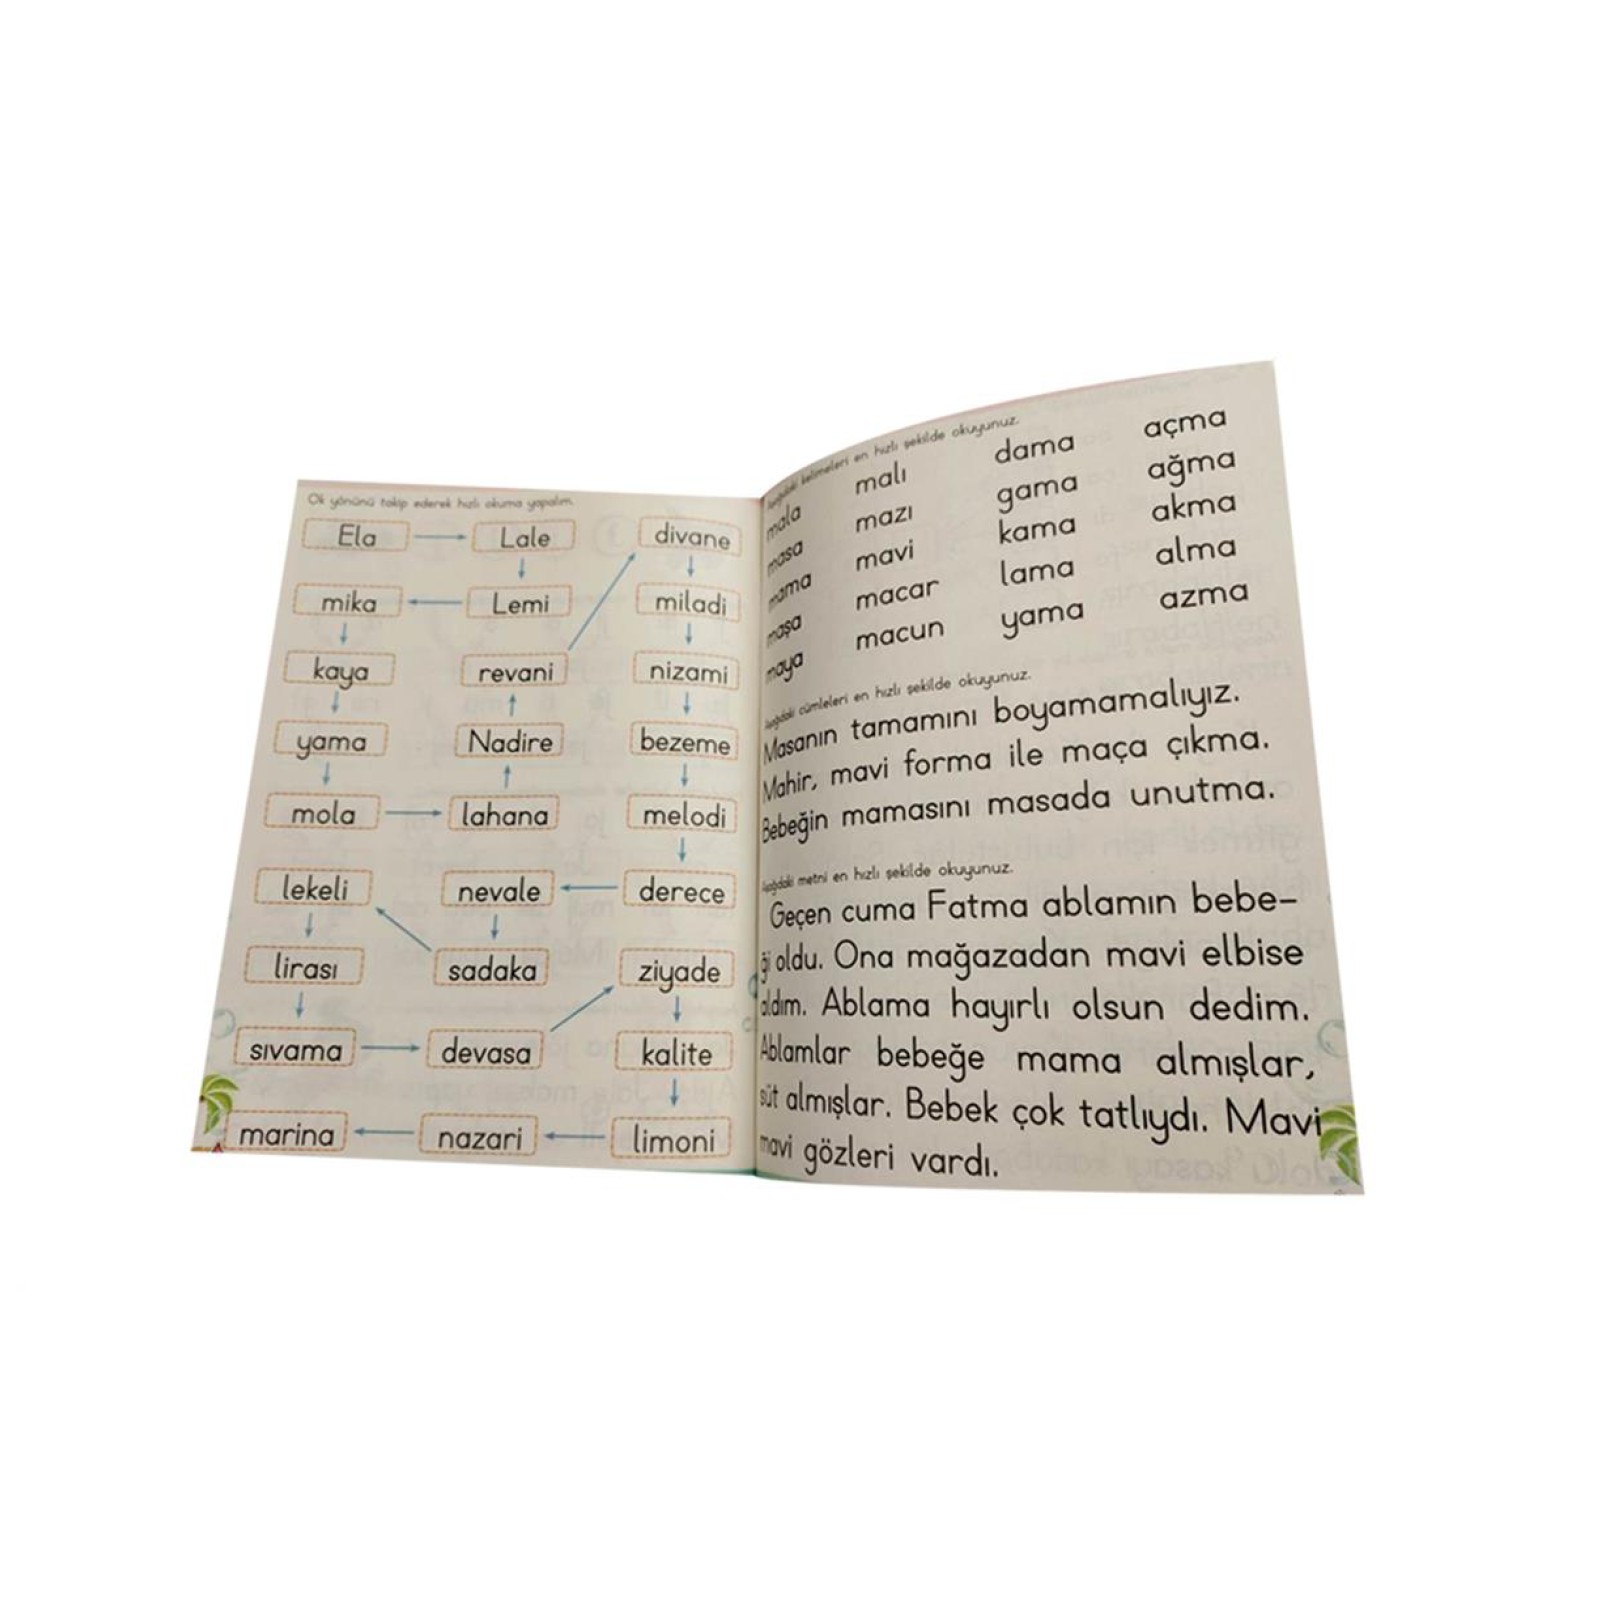 Ok yönünü takip ederek hızlı okuma yapalım.
Ela Lale divane
mika Lemi miladi
kaya revani nizami
yama Nadire bezeme
mola lahana melodi
lekeli nevale derece
lirası sadaka ziyade
sıvama devasa kalite
marina nazari limoni
Aşağıdaki kelimeleri en hızlı şekilde okuyunuz.
mala malı dama açma
masa mazı gama ağma
mama mavi kama akma
maşa macar lama alma
maya macun yama azma
Aşağıdaki cümleleri en hızlı şekilde okuyunuz.
Masanın tamamını boyamamalıyız.
Mahir, mavi forma ile maça çıkma.
Bebeğin mamasını masada unutma.
Aşağıdaki metni en hızlı şekilde okuyunuz.
Geçen cuma Fatma ablamın bebe-
ği oldu. Ona mağazadan mavi elbise
aldım. Ablama hayırlı olsun dedim.
Ablamlar bebeğe mama almışlar,
süt almışlar. Bebek çok tatlıydı. Mavi
mavi gözleri vardı.